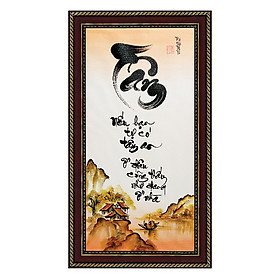 Tâm
nếu bạn
tự có
tâm an
ở đâu
cũng thấy
như đang
ở nhà